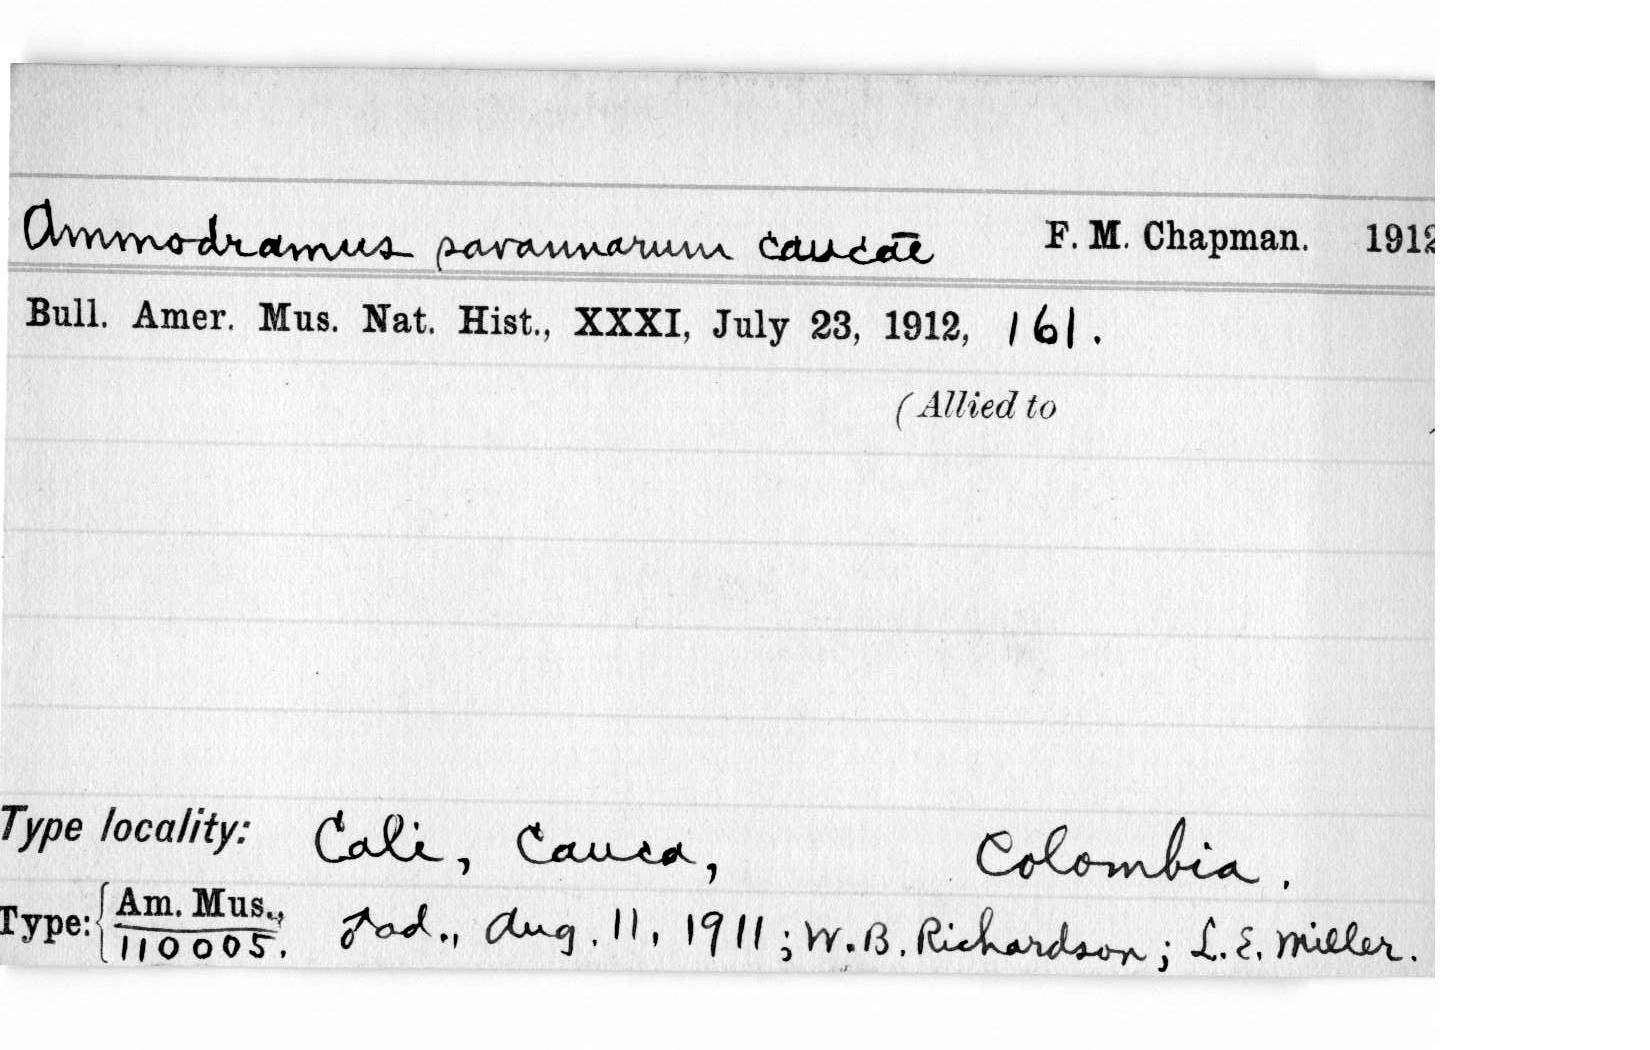 Ammodramus savannarum caucae F. M. Chapman. 1912
Bull. Amer. Mus. Nat. Hist., XXXI, July 23, 1912, 161.
(Allied to
Type locality: Cali, Cauca, Colombia.
Type: { Am. Mus.,
110005. ♂ad., Aug. 11, 1911; W. B. Richardson; L. E. Miller.